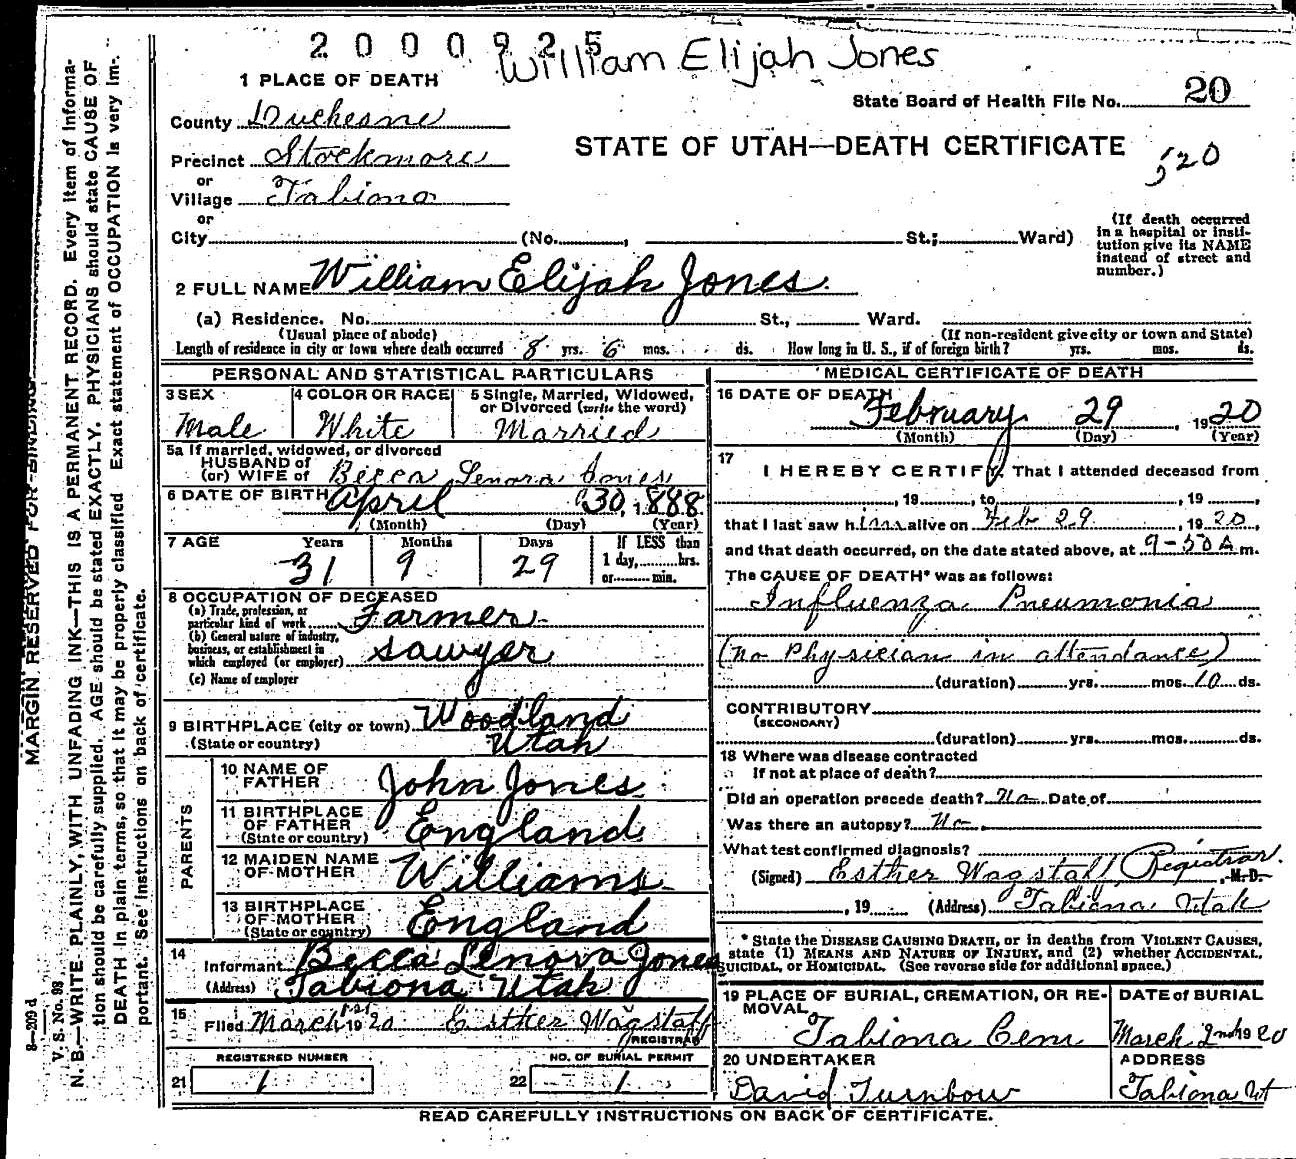 2000925
William Elijah Jones
1 PLACE OF DEATH
State Board of Health File No. 20
County Duchesne
STATE OF UTAH—DEATH CERTIFICATE
520
Precinct Stockmore
or
Village Tabiona
or
City (No. , St.; Ward)
(If death occurred in a hospital or insti-
tution give its NAME
instead of street and
number.)
2 FULL NAME William Elijah Jones
(a) Residence. No. St., Ward.
(Usual place of abode) (If non-resident give city or town and State)
Length of residence in city or town where death occurred 8 yrs. 6 mos. ds. How long in U. S., if of foreign birth? yrs. mos. ds.
PERSONAL AND STATISTICAL PARTICULARS
3 SEX
Male
4 COLOR OR RACE
White
5 Single, Married, Widowed,
or Divorced (write the word)
Married
5a If married, widowed, or divorced
HUSBAND of
(or) WIFE of Becca Lenora Jones
6 DATE OF BIRTH April 30, 1888
(Month) (Day) (Year)
7 AGE Years Months Days If LESS than
31 9 29 1 day, hrs.
or min.
8 OCCUPATION OF DECEASED
(a) Trade, profession, or
particular kind of work Farmer
(b) General nature of industry,
business, or establishment in
which employed (or employer) Sawyer
(c) Name of employer
9 BIRTHPLACE (city or town) Woodland
(State or country) Utah
PARENTS
10 NAME OF
FATHER John Jones
11 BIRTHPLACE
OF FATHER
(State or country) England
12 MAIDEN NAME
OF MOTHER Williams
13 BIRTHPLACE
OF MOTHER
(State or country) England
14
Informant Becca Lenora Jones
(Address) Tabiona Utah
15
Filed March 1st 1920 Esther Wagstaff
REGISTRAR
REGISTERED NUMBER
21 1
NO. OF BURIAL PERMIT
22 1
MEDICAL CERTIFICATE OF DEATH
16 DATE OF DEATH
February 29, 1920
(Month) (Day) (Year)
17
I HEREBY CERTIFY, That I attended deceased from
, 19 , to , 19 ,
that I last saw him alive on Feb 29, 1920,
and that death occurred, on the date stated above, at 9-50 A m.
The CAUSE OF DEATH* was as follows:
Influenza Pneumonia
(No Physician in attendance)
(duration) yrs. mos. 10 ds.
CONTRIBUTORY
(SECONDARY)
(duration) yrs. mos. ds.
18 Where was disease contracted
If not at place of death?
Did an operation precede death? No Date of
Was there an autopsy? No
What test confirmed diagnosis?
(Signed) Esther Wagstaff Registrar, M. D.
, 19 (Address) Tabiona Utah
* State the DISEASE CAUSING DEATH, or in deaths from VIOLENT CAUSES,
state (1) MEANS AND NATURE OF INJURY, and (2) whether ACCIDENTAL,
SUICIDAL, or HOMICIDAL. (See reverse side for additional space.)
19 PLACE OF BURIAL, CREMATION, OR RE-
MOVAL
Tabiona Cem
DATE OF BURIAL
March 2nd 1920
20 UNDERTAKER
David Turnbow
ADDRESS
Tabiona Ut
READ CAREFULLY INSTRUCTIONS ON BACK OF CERTIFICATE.
8—209 d
V. S. No. 98
MARGIN RESERVED FOR BINDING
N. B.—WRITE PLAINLY, WITH UNFADING INK—THIS IS A PERMANENT RECORD. Every item of informa-
tion should be carefully supplied. AGE should be stated EXACTLY. PHYSICIANS should state CAUSE OF
DEATH in plain terms, so that it may be properly classified. Exact statement of OCCUPATION is very im-
portant. See instructions on back of certificate.